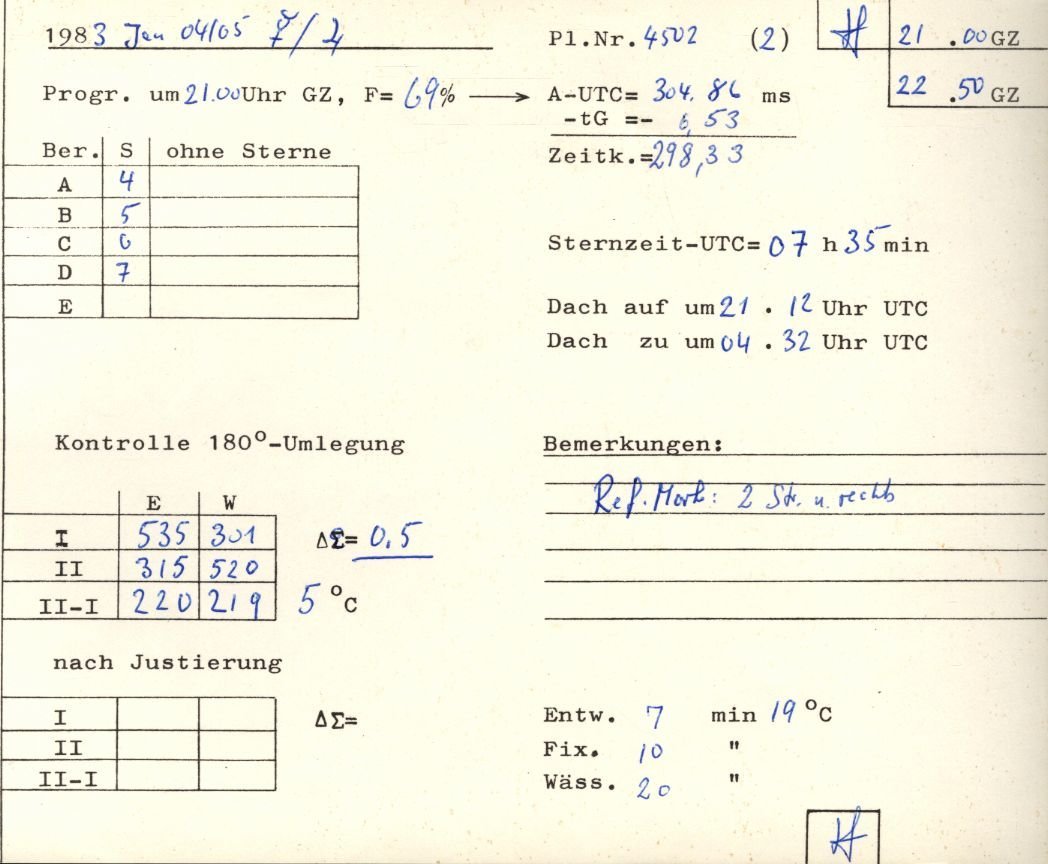 1983 Jan 04/05 ☿/♃ Pl.Nr. 4502 (2) 21 .00 GZ
22 .50 GZ
Progr. um 21.00 Uhr GZ, F= 69% → A-UTC= 304.86 ms
-tG =- 6,53
Zeitk.=298,33
Ber. S ohne Sterne
A 4
B 5
C 0
D 7
E
Sternzeit-UTC= 07 h 35 min
Dach auf um 21 . 12 Uhr UTC
Dach zu um 04 . 32 Uhr UTC
Kontrolle 180°-Umlegung
E W
I 535 301 ΔΣ= 0.5
II 315 520
II-I 220 219 5 °C
Bemerkungen:
Ref. Mark: 2 Str. u. rechts
nach Justierung
I ΔΣ=
II
II-I
Entw. 7 min 19 °C
Fix. 10 "
Wäss. 20 "